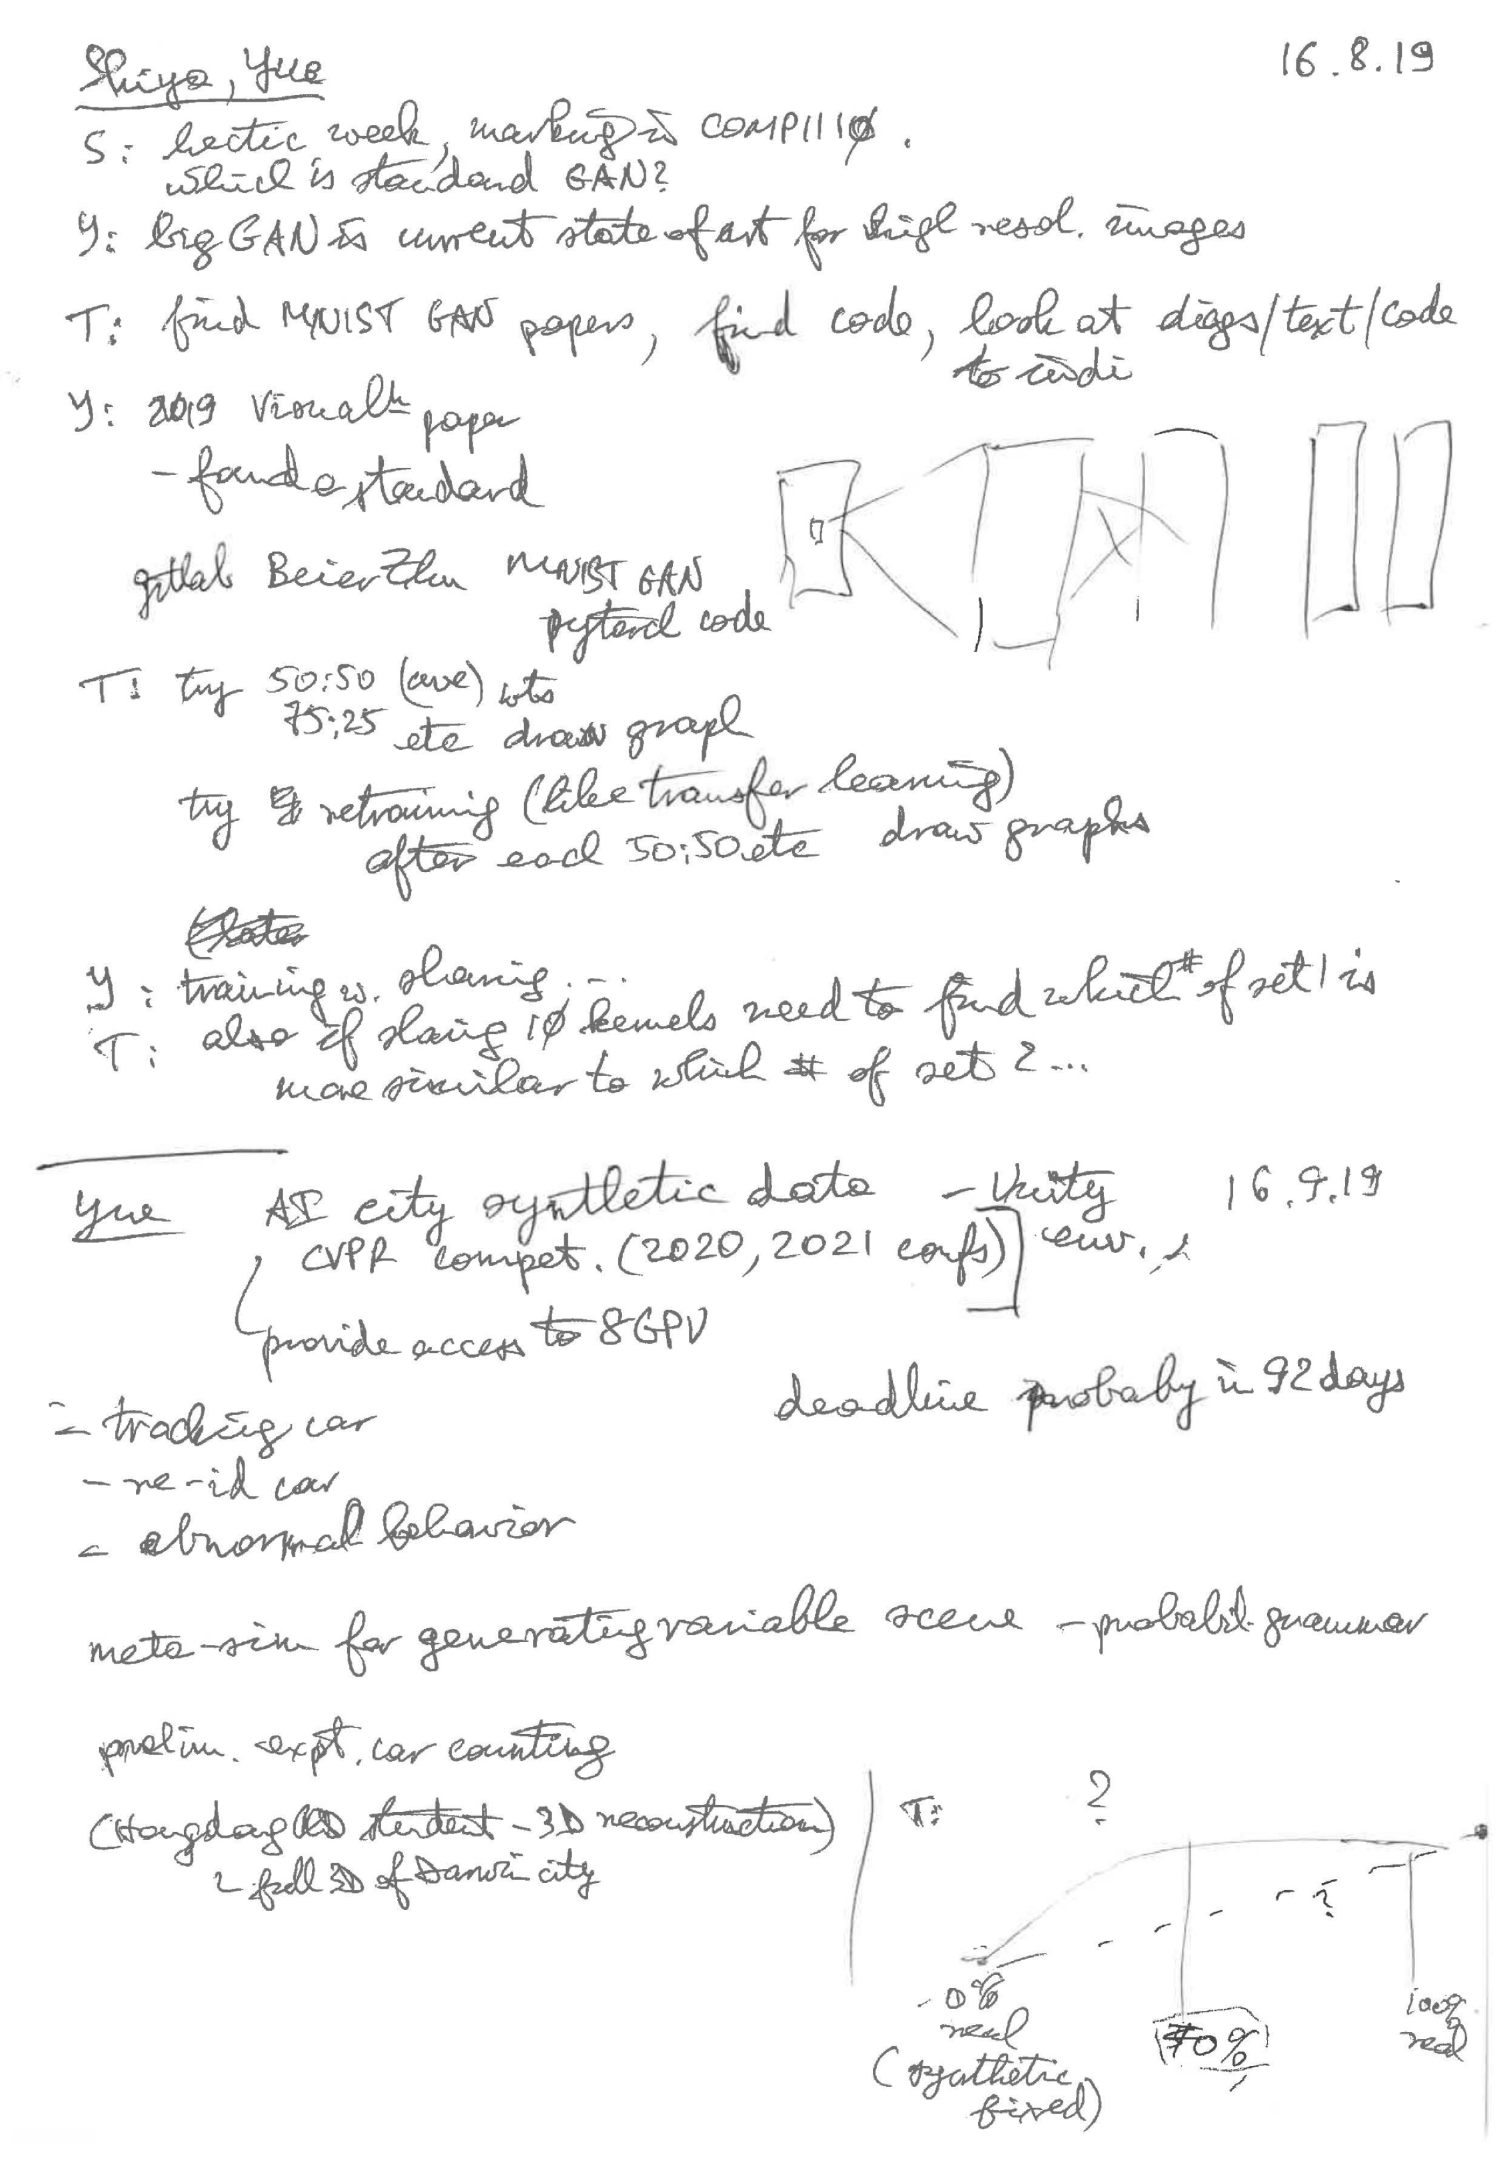 Shiya, Yue 16.8.19
S: hectic week, marking is COMP1110.
which is standard GAN?
Y: big GAN is current state of art for high resol. images
T: find MNIST GAN papers, find code, look at diags/text/code
to indi
Y: 2019 Visual paper
- found a standard
gitlab BeierZhu MNIST GAN
pytorch code
T: try 50:50 (ave) wts
75:25 etc draw graph
try retraining (like transfer learning)
after each 50:50 etc draw graphs
Y: training w. sharing...
T: also if sharing 10 kernels need to find which # of set 1 is
more similar to which # of set 2...
Yue AI city synthetic data - Unity 16.9.19
CVPR compet. (2020, 2021 confs) env.
provide access to 8GPU
deadline probaby in 92 days
- tracking car
- re-id car
- abnormal behavior
meta-sim for generating variable scene - probabil. grammar
prelim. expt. car counting
(Hongdong student - 3D reconstruction)
full 3D of city
T: ?
?
0% real
(synthetic fixed)
70%
100% real